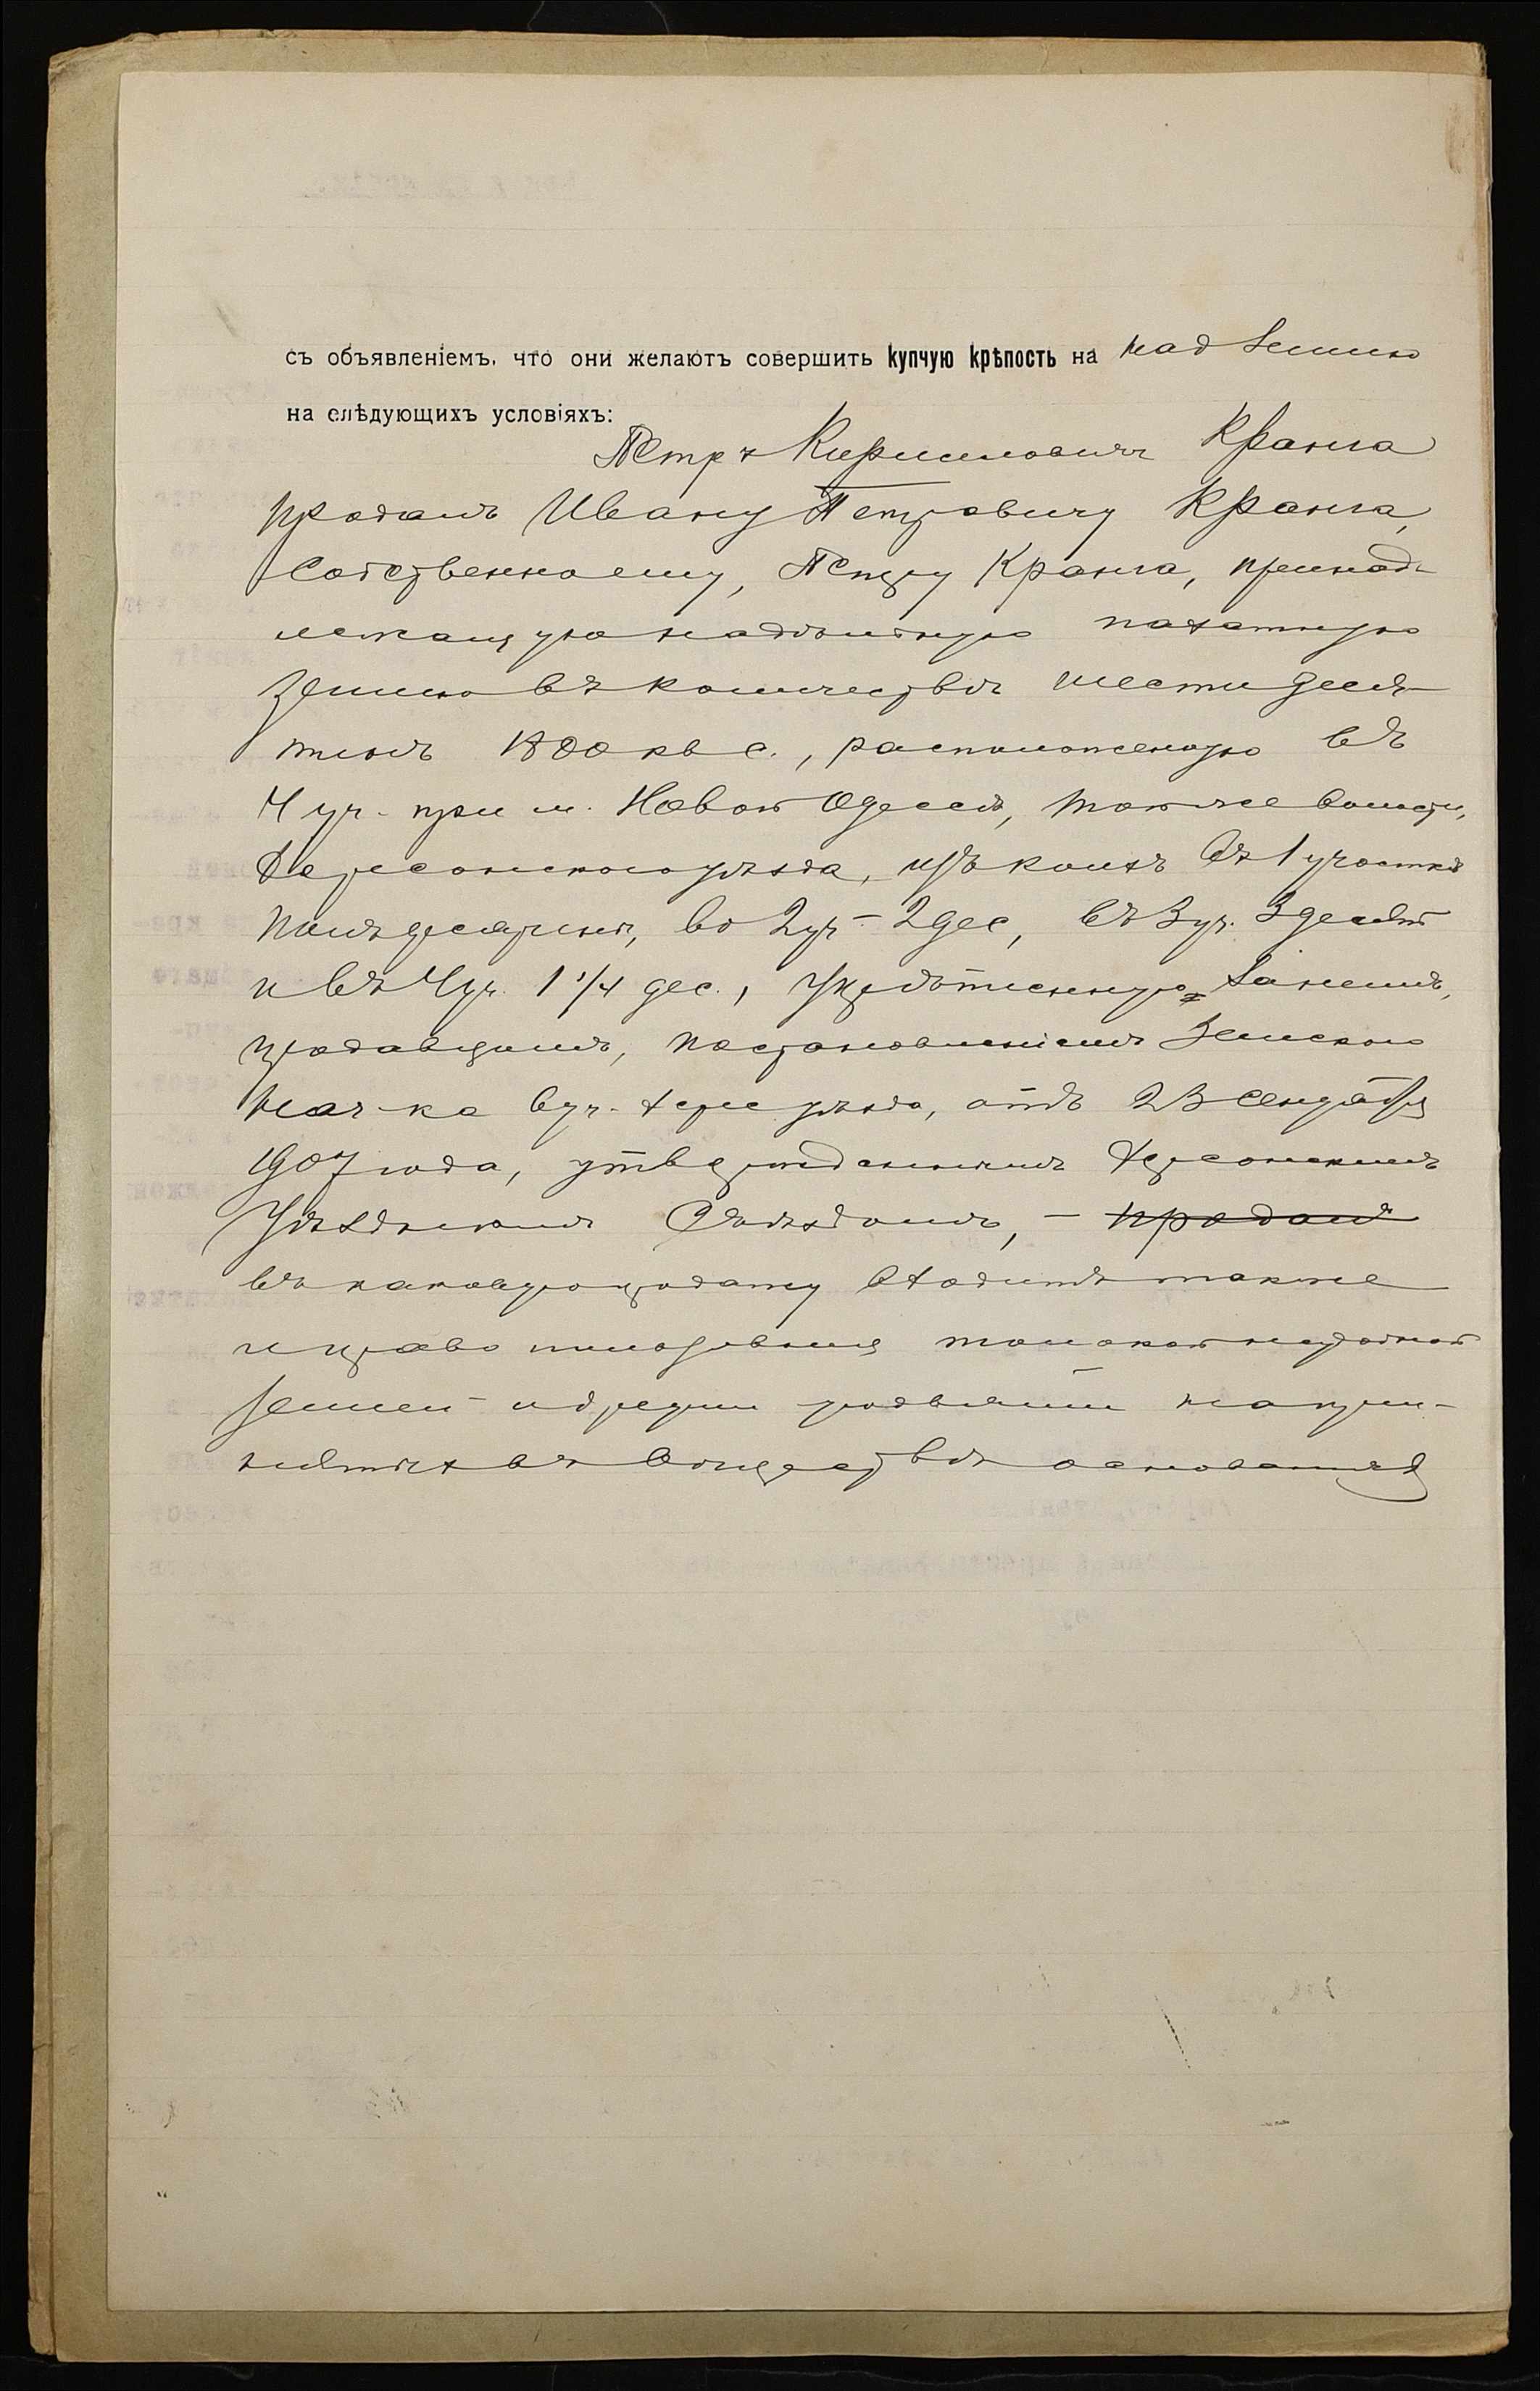 съ объявленіемъ, что они желаютъ совершить купчую крѣпость на над землю
на слѣдующихъ условіяхъ:
Петръ Кирилловичъ Кранга
продалъ Ивану Петровичу Кранга,
собственно ему, Петру Кранга, принад-
лежащую надѣльную пахатную
землю въ количествѣ шести деся-
тинъ 1800 кв с., расположенную въ
4 уч. при м. Новой Одессѣ, той же волости,
Херсонскаго уѣзда, изъ коихъ въ 1 участкѣ
полъ десятины, во 2 уч - 2 дес, въ 3 уч. 3 десят
и въ 4 уч. 1 1/4 дес., укрѣпленную за нимъ,
продавцомъ, постановленіемъ Земскаго
Нач-ка 6 уч. Херс уѣзда, отъ 23 Сентября
1907 года, утвержденнымъ Херсонскимъ
Уѣзднымъ Съѣздомъ, - продалъ
въ каковую продажу входитъ также
и право пользованія
землей и другими угодьями на при-
нятыхъ въ обществѣ основаніяхъ